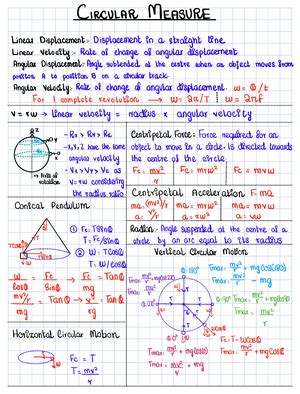 CIRCULAR MEASURE
Linear Displacement:- Displacement in a straight line
Linear Velocity:- Rate of change of angular displacement
Angular Displacement: Angle subtended at the centre when an object moves from
position A to position B on a circular track.
Angular Velocity: Rate of change of angular displacement. ω = θ/t
For 1 complete revolution → ω = 2π/T | ω = 2πf
v = rω → linear velocity = radius × angular velocity
- Rx > Ry > Rz
- x, y, z have the same
angular velocity
- Vx > Vy > Vz as
v = rω considering
the radius ratio
Axis of rotation
Centripetal Force: Force required for an
object to move in a circle. Is directed towards
the centre of the circle.
Fc = mv²/r Fc = mrω² Fc = mvω
Centripetal Acceleration F = ma
ma = (mv²/r) ma = mrω² ma = mvω
a = v²/r a = rω² a = vω
Radian:- Angle suspended at the centre of a
circle by an arc equal to its radius
Conical Pendulum
① Fc = T Sinθ
T = Fc/Sinθ
② W = T Cosθ
T = W/Cosθ
W/Cosθ = Fc/Sinθ → Fc/W = Tanθ
mv²/r / mg = Tanθ → v²/rg = Tanθ
Horizontal Circular Motion
Fc = T
T = mv²/r
Vertical Circular Motion
Fc = T - WCosθ
Tmax = mv²/r + mg Cosθ
Tmax = mv²/r + mg